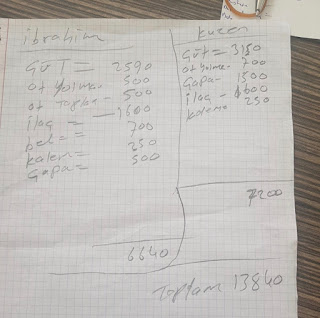 ibrahim
Güt = 2590
ot yolma - 500
ot toplama - 500
ilaç = 1600
bel = 700
kalem = 250
Gapa = 500
6640
kuzen
Güt = 3150
ot yolma - 700
Gapa - 1500
ilaç - 1600
kalem = 250
7200
Toplam 13840